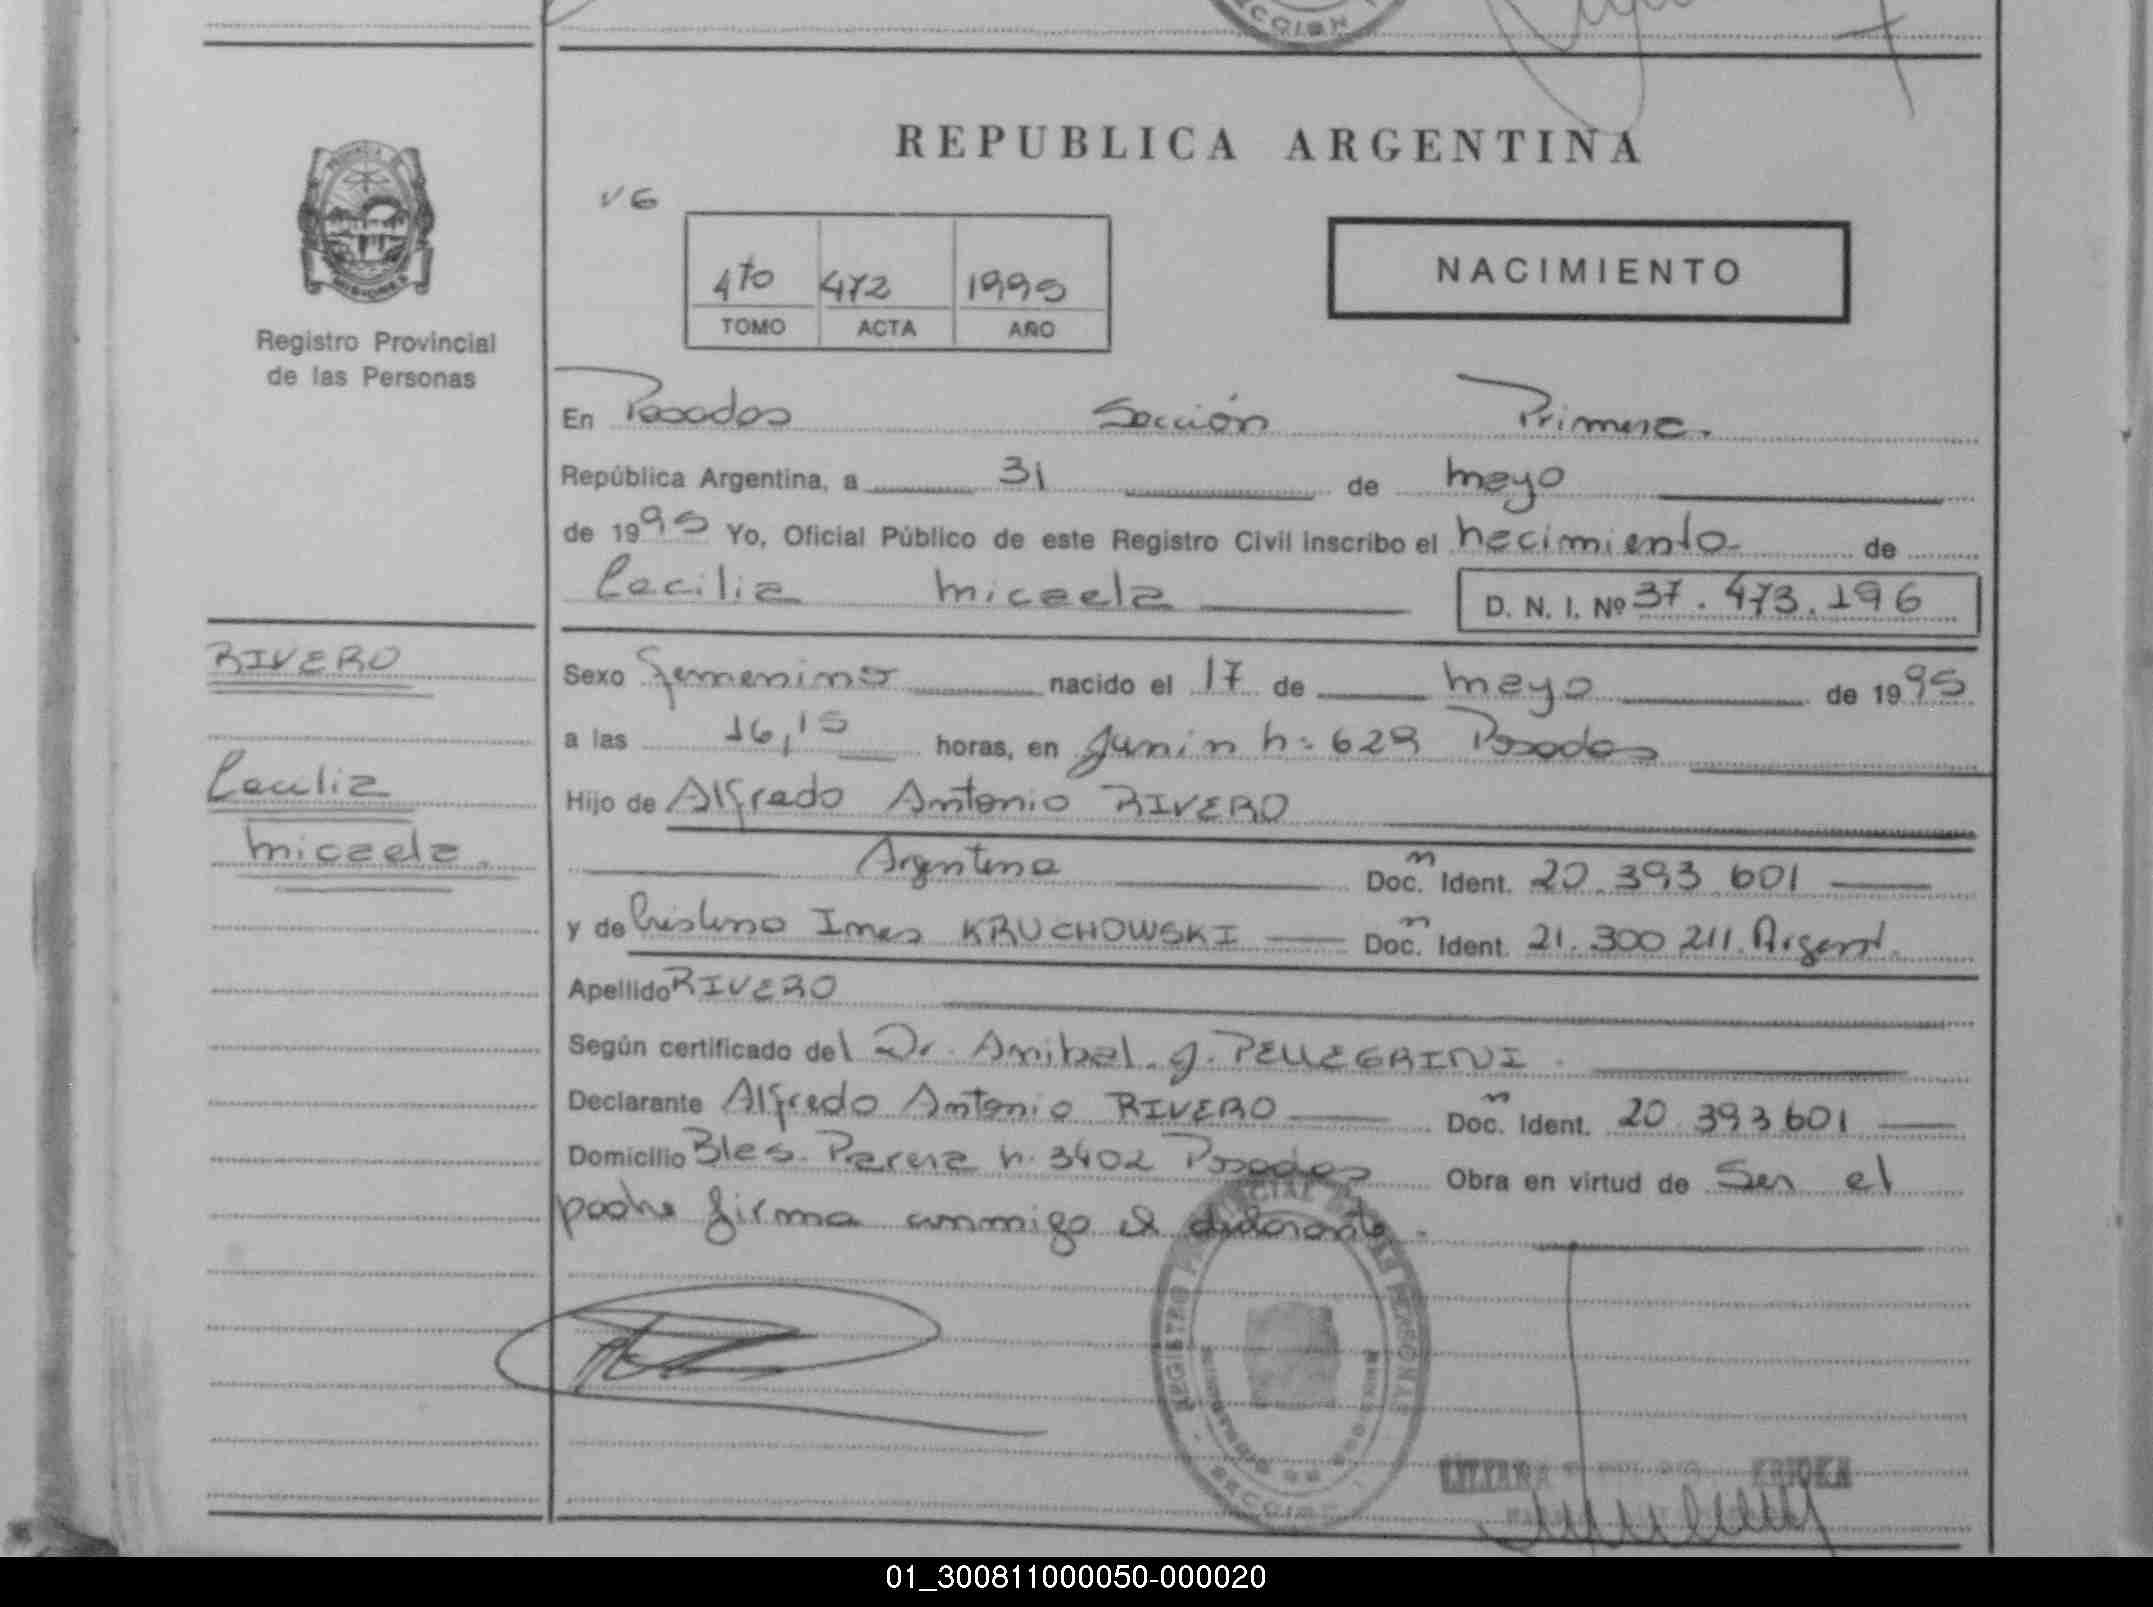 CCION
REPUBLICA ARGENTINA
V6
4to 472 1995
TOMO ACTA AÑO
NACIMIENTO
Registro Provincial
de las Personas
En Posadas Sección Primera.
República Argentina, a 31 de mayo
de 1995 Yo, Oficial Público de este Registro Civil inscribo el nacimiento de
Cecilia Micaela D. N. I. Nº 37.473.196
RIVERO
Cecilia
Micaela.
Sexo Femenino nacido el 17 de mayo de 1995
a las 16,15 horas, en Junin n: 629 Posadas
Hijo de Alfredo Antonio RIVERO
Argentina Doc. Ident. 20.393.601
y de Cristina Ines KRUCHOWSKI Doc. Ident. 21.300.211. Argent.
Apellido RIVERO
Según certificado del Dr. Anibal. J. PELLEGRINI.
Declarante Alfredo Antonio RIVERO Doc. Ident. 20.393.601
Domicilio Blas Parera n. 3402 Posadas Obra en virtud de Ser el
padre firma conmigo el declarante.
REGISTRO PROVINCIAL DE LAS PERSONAS
SECCION
01_300811000050-000020